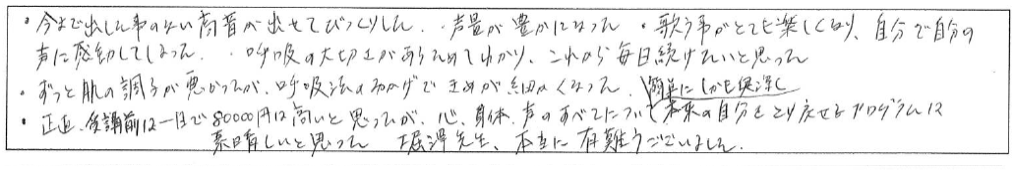 ・今まで出した事のない高音が出せてびっくりした。・声量が豊かになった ・歌う事がとても楽しくなり、自分で自分の
声に感動してしまった。 ・呼吸の大切さがあらためてわかり、これから毎日続けたいと思った
・ずっと肌の調子が悪かったが、呼吸法のおかげできめが細かくなった。 簡単にしかも奥深く
・正直、受講前は一日で80000円は高いと思ったが、心、身体、声のすべてについて本来の自分をとり戻せるプログラムは
素晴しいと思った 堀澤先生、本当に有難うございました。